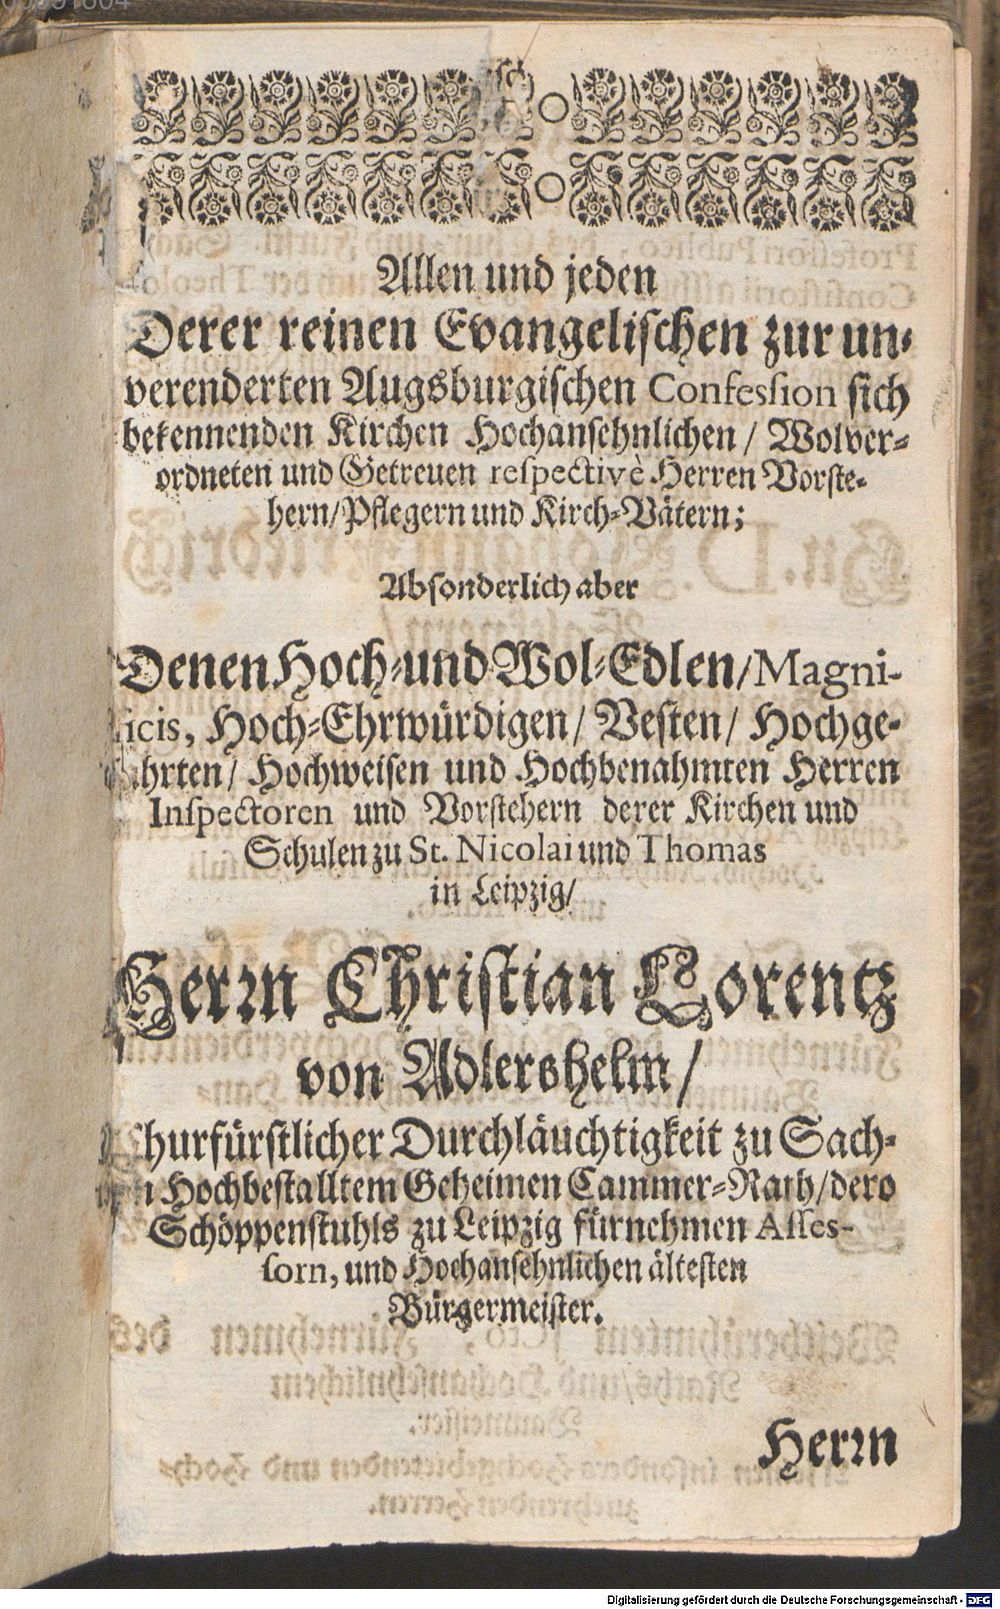 Allen und jeden
Derer reinen Evangelischen zur un-
verenderten Augsburgischen Confession sich
bekennenden Kirchen Hochansehnlichen / Wolver-
ordneten und Getreuen respectivè Herren Vorste-
hern/Pflegern und Kirch-Vätern;
Absonderlich aber
Denen Hoch-und Wol-Edlen/Magni-
icis, Hoch-Ehrwürdigen/ Vesten/ Hochge-
hrten/ Hochweisen und Hochbenahmten Herren
Inspectoren und Vorstehern derer Kirchen und
Schulen zu St. Nicolai und Thomas
in Leipzig/
Herrn Christian Lorentz
von Adlershelm/
hurfürstlicher Durchläuchtigkeit zu Sach-
n Hochbestalltem Geheimen Cammer-Rath/dero
Schöppenstuhls zu Leipzig fürnehmen Asses-
sorn, und Hochansehnlichen ältesten
Bürgermeister.
Herrn
Digitalisierung gefördert durch die Deutsche Forschungsgemeinschaft - DFG